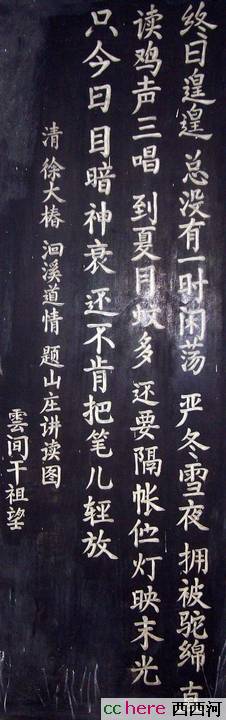 终日遑遑 总没有一时闲荡 严冬雪夜 拥被驼绵 直
读鸡声三唱 到夏月蚊多 还要隔帐灯映末光
只今日目暗神衰 还不肯把笔儿轻放
清 徐大椿 洄溪道情 题山庄讲读图
雲间干祖望
cchere 西西河